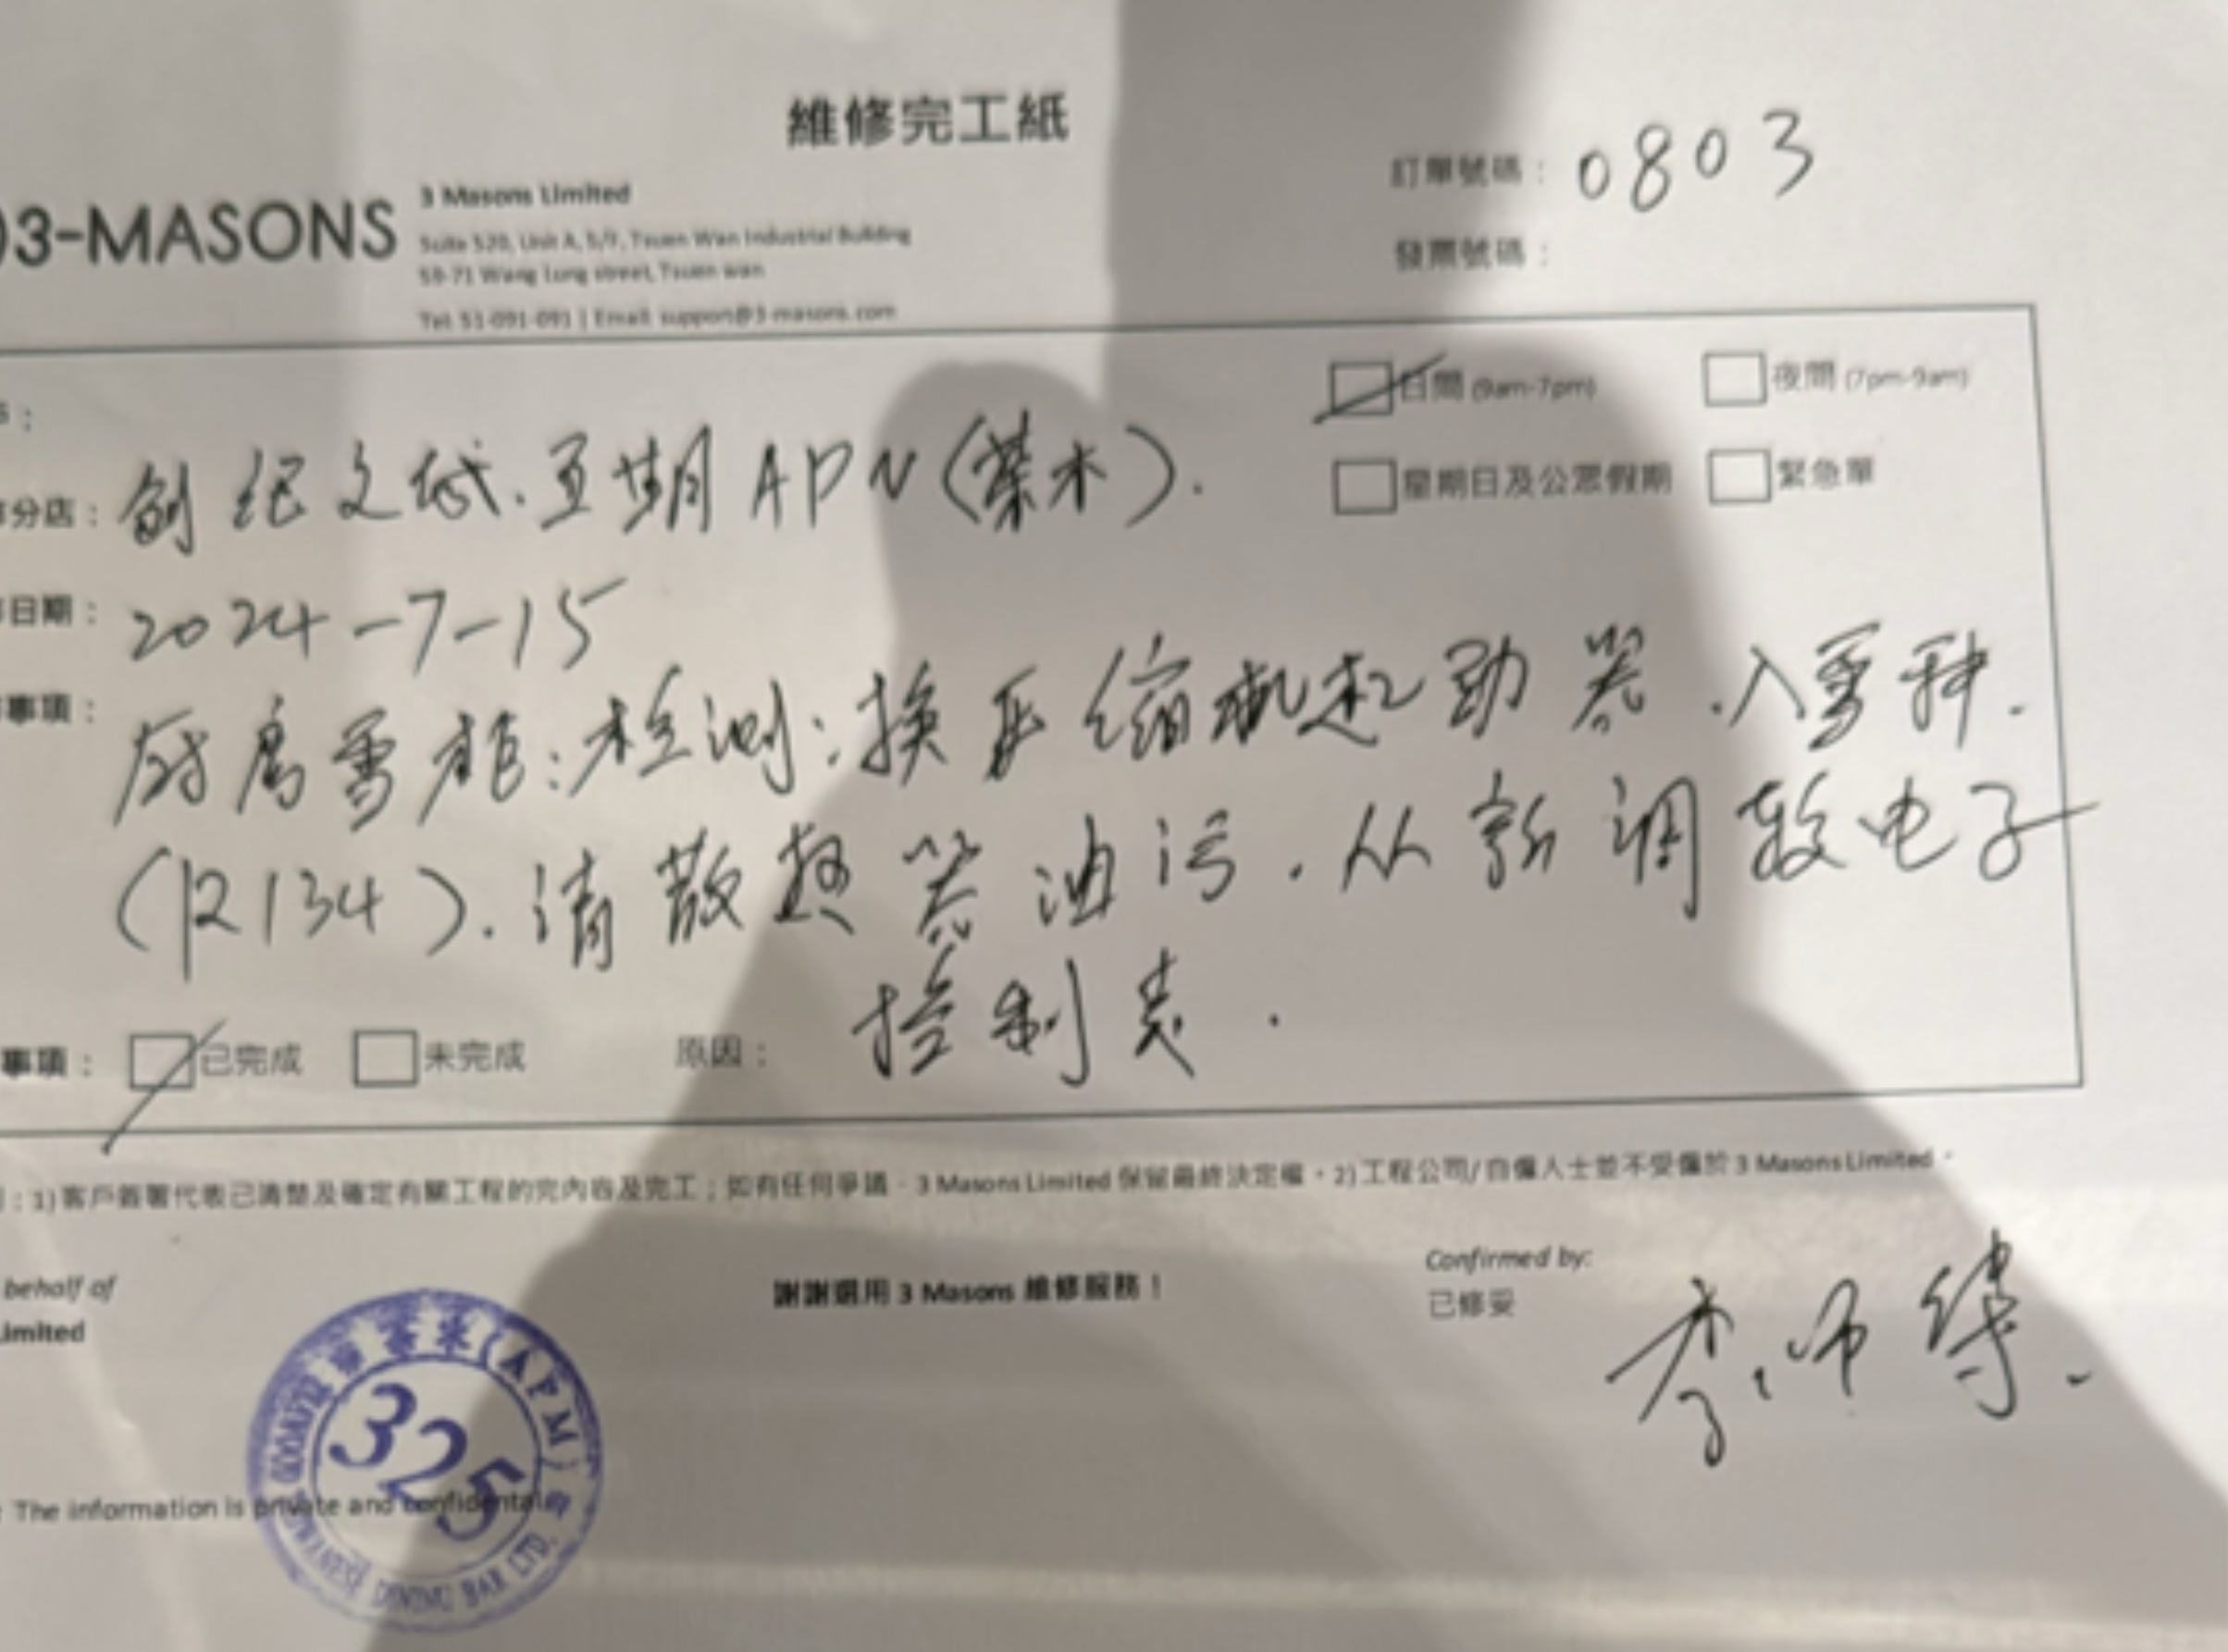 維修完工紙
訂單號碼： 0803
發票號碼：
3-MASONS
3 Masons Limited
Suite 520, Unit A, 5/F, Tsuen Wan Industrial Building
59-71 Wang Lung street, Tsuen wan
Tel: 51-091-091 | Email: support@3-masons.com
日間 (9am-7pm) 夜間 (7pm-9am)
星期日及公眾假期 緊急單
分店： 创纪之城.五期APN(茶木).
日期： 2024-7-15
事項： 厨房雪柜:检测:换压缩机起动器.入雪种.
(R134).清散热器油污.从新调较电子
控制表.
事項： 已完成 未完成 原因：
：1) 客戶簽署代表已清楚及確定有關工程的完內容及完工；如有任何爭議，3 Masons Limited 保留最終決定權。2) 工程公司/自僱人士並不受僱於 3 Masons Limited。
behalf of
Limited
謝謝選用 3 Masons 維修服務！
Confirmed by:
已修妥
李师傅.
茶木(APM)
325
DINING BAR LTD.
The information is private and confidential